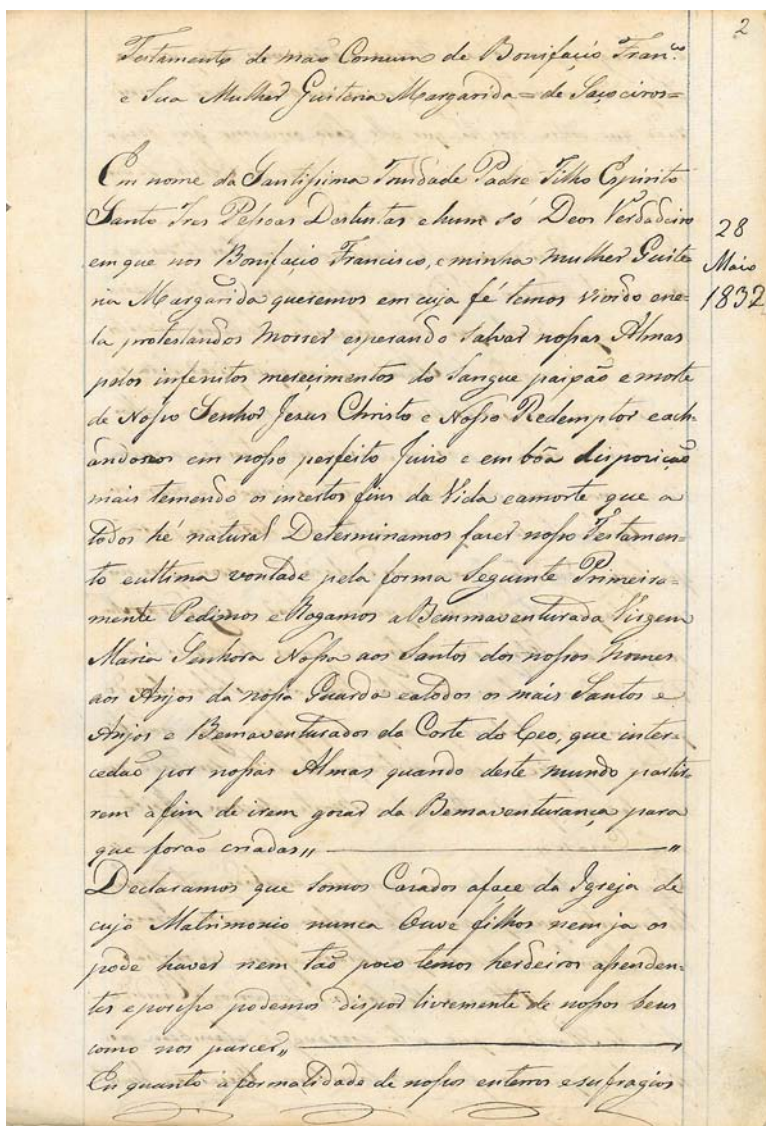 2
Testamento de mão Comum de Bonifacio Fran.co
e Sua Mulher Guiteria Margarida = de Saçoeiros =
Em nome da Santissima Trindade Padre Filho Espirito
Santo Tres Pessoas Destintas e hum só Deos Verdadeiro
em que nos Bonifacio Francisco, e minha mulher Guite
ria Margarida queremos em cuja fé temos vivido ene-
la protestandos morrer esperando Salvar nossas Almas
pelos infenitos mereçimentos do Sangue paixão e morte
de Nosso Senhor Jezus Christo e Nosso Redemptor each-
andosnos em nosso perfeito Juizo e em bôa disposição
mais temendo os incertos fins da Vida eamorte que a
todos hé natural Determinamos fazer nosso Testamen-
to eultima vontade pela forma Seguinte Primeira-
mente Pedimos e Rogamos a Bemmaventurada Virgem
Maria Senhora Nossa aos Santos dos nossos Nomes
aos Anjos da nossa Guarda eatodos os mais Santos e
Anjos e Bemaventurados da Corte do Ceo, que inter-
cedão por nossas Almas quando deste mundo partir-
rem afim de irem gozar da Bemaventurança para
que forão criadas,, ——— "
Declaramos que Somos Cazados aface da Igreja de
cujo Matrimonio nunca Ouve filhos nem ja os
pode haver nem tão poco temos herdeiros assenden-
tes eporisso podemos dispor livremente de nossos bens
como nos parcer,, ———
En quanto á formalidade de nossos enterros esufragios
28
Maio
1832